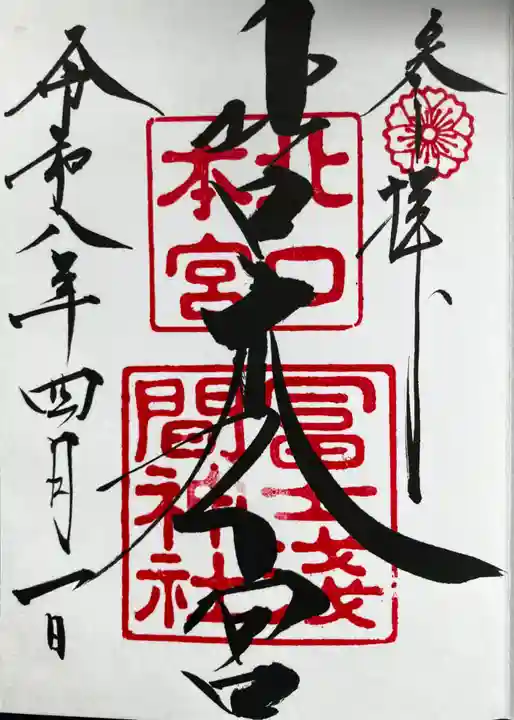 参拝
北口本宮
北口
本宮
冨士淺
間神社
令和八年四月一日